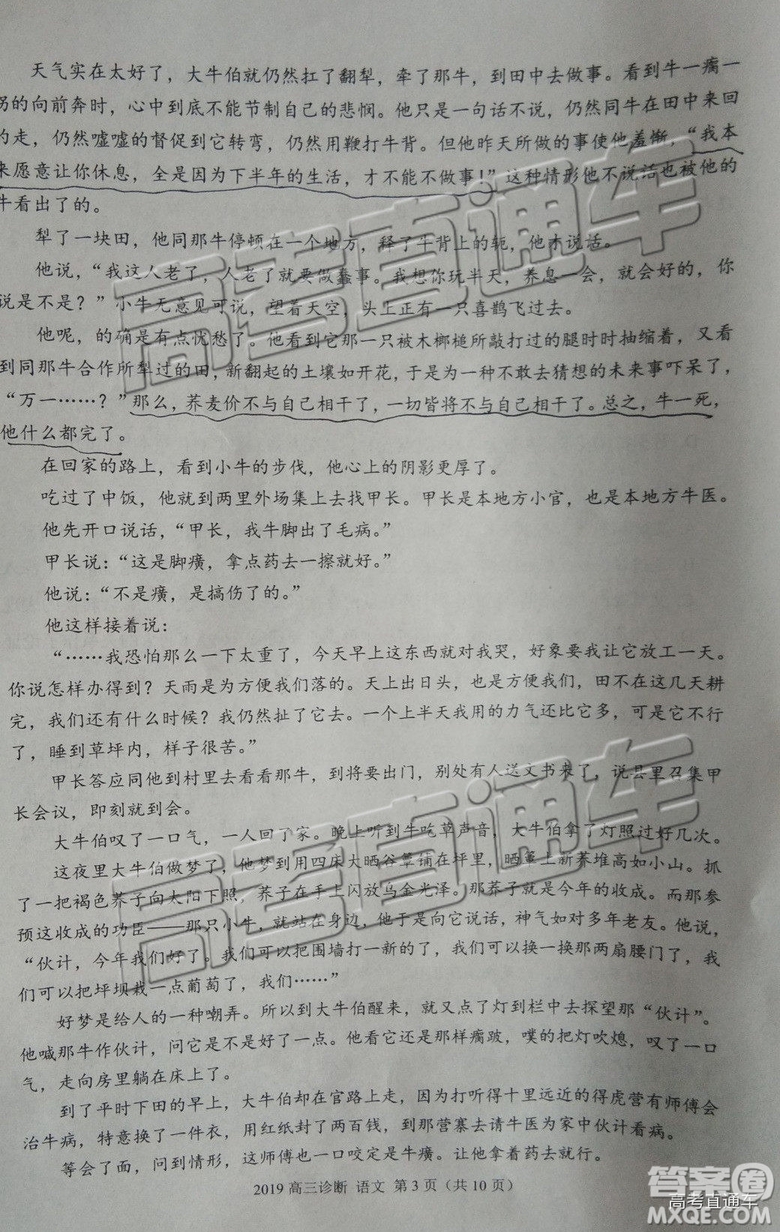 天气实在太好了，大牛伯就仍然扛了翻犁，牵了那牛，到田中去做事。看到牛一瘸一
拐的向前奔时，心中到底不能节制自己的悲悯。他只是一句话不说，仍然同牛在田中来回
的走，仍然嘘嘘的督促到它转弯，仍然用鞭打牛背。但他昨天所做的事使他羞惭，“我本
来愿意让你休息，全是因为下半年的生活，才不能不做事！”这种情形他不说话也被他的
牛看出了的。
犁了一块田，他同那牛停顿在一个地方，释了牛背上的轭，他才说话。
他说，“我这人老了，人老了就要做蠢事。我想你玩半天，养息一会，就会好的，你
说是不是？”小牛无意见可说，望着天空，头上正有一只喜鹊飞过去。
他呢，的确是有点忧愁了。他看到它那一只被木榔槌所敲打过的腿时时抽缩着，又看
到同那牛合作所犁过的田，新翻起的土壤如开花，于是为一种不敢去猜想的未来事吓呆了，
“万一……？”那么，荞麦价不与自己相干了，一切皆将不与自己相干了。总之，牛一死，
他什么都完了。
在回家的路上，看到小牛的步伐，他心上的阴影更厚了。
吃过了中饭，他就到两里外场集上去找甲长。甲长是本地方小官，也是本地方牛医。
他先开口说话，“甲长，我牛脚出了毛病。”
甲长说：“这是脚癀，拿点药去一擦就好。”
他说：“不是癀，是搞伤了的。”
他这样接着说：
“……我恐怕那么一下太重了，今天早上这东西就对我哭，好象要我让它放工一天。
你说怎样办得到？天雨是为方便我们落的。天上出日头，也是方便我们，田不在这几天耕
完，我们还有什么时候？我仍然扯了它去。一个上半天我用的力气还比它多，可是它不行
了，睡到草坪内，样子很苦。”
甲长答应同他到村里去看看那牛，到将要出门，别处有人送文书来了，说县里召集甲
长会议，即刻就到会。
大牛伯叹了一口气，一人回了家。晚上听到牛吃草声音，大牛伯拿了灯照过好几次。
这夜里大牛伯做梦了，他梦到用四床大晒谷簟铺在坪里，晒簟上新荞堆高如小山。抓
了一把褐色荞子向太阳下照，荞子在手上闪放乌金光泽。那荞子就是今年的收成。而那参
预这收成的功臣——那只小牛，就站在身边，他于是向它说话，神气如对多年老友。他说，
“伙计，今年我们好了。我们可以把围墙打一新的了，我们可以换一换那两扇腰门了，我
们可以把坪坝栽一点葡萄了，我们……”
好梦是给人的一种嘲弄。所以到大牛伯醒来，就又点了灯到栏中去探望那“伙计”。
他喊那牛作伙计，问它是不是好了一点。他看它还是那样瘸跛，噗的把灯吹熄，叹了一口
气，走向房里躺在床上了。
到了平时下田的早上，大牛伯却在官路上走，因为打听得十里远近的得虎营有师傅会
治牛病，特意换了一件衣，用红纸封了两百钱，到那营寨去请牛医为家中伙计看病。
等会了面，问到情形，这师傅也一口咬定是牛癀。让他拿着药去就行。
2019 高三诊断 语文 第 3 页（共 10 页）
高考直通车
高考直通车
答案圈
MXQE.COM
高考直通车